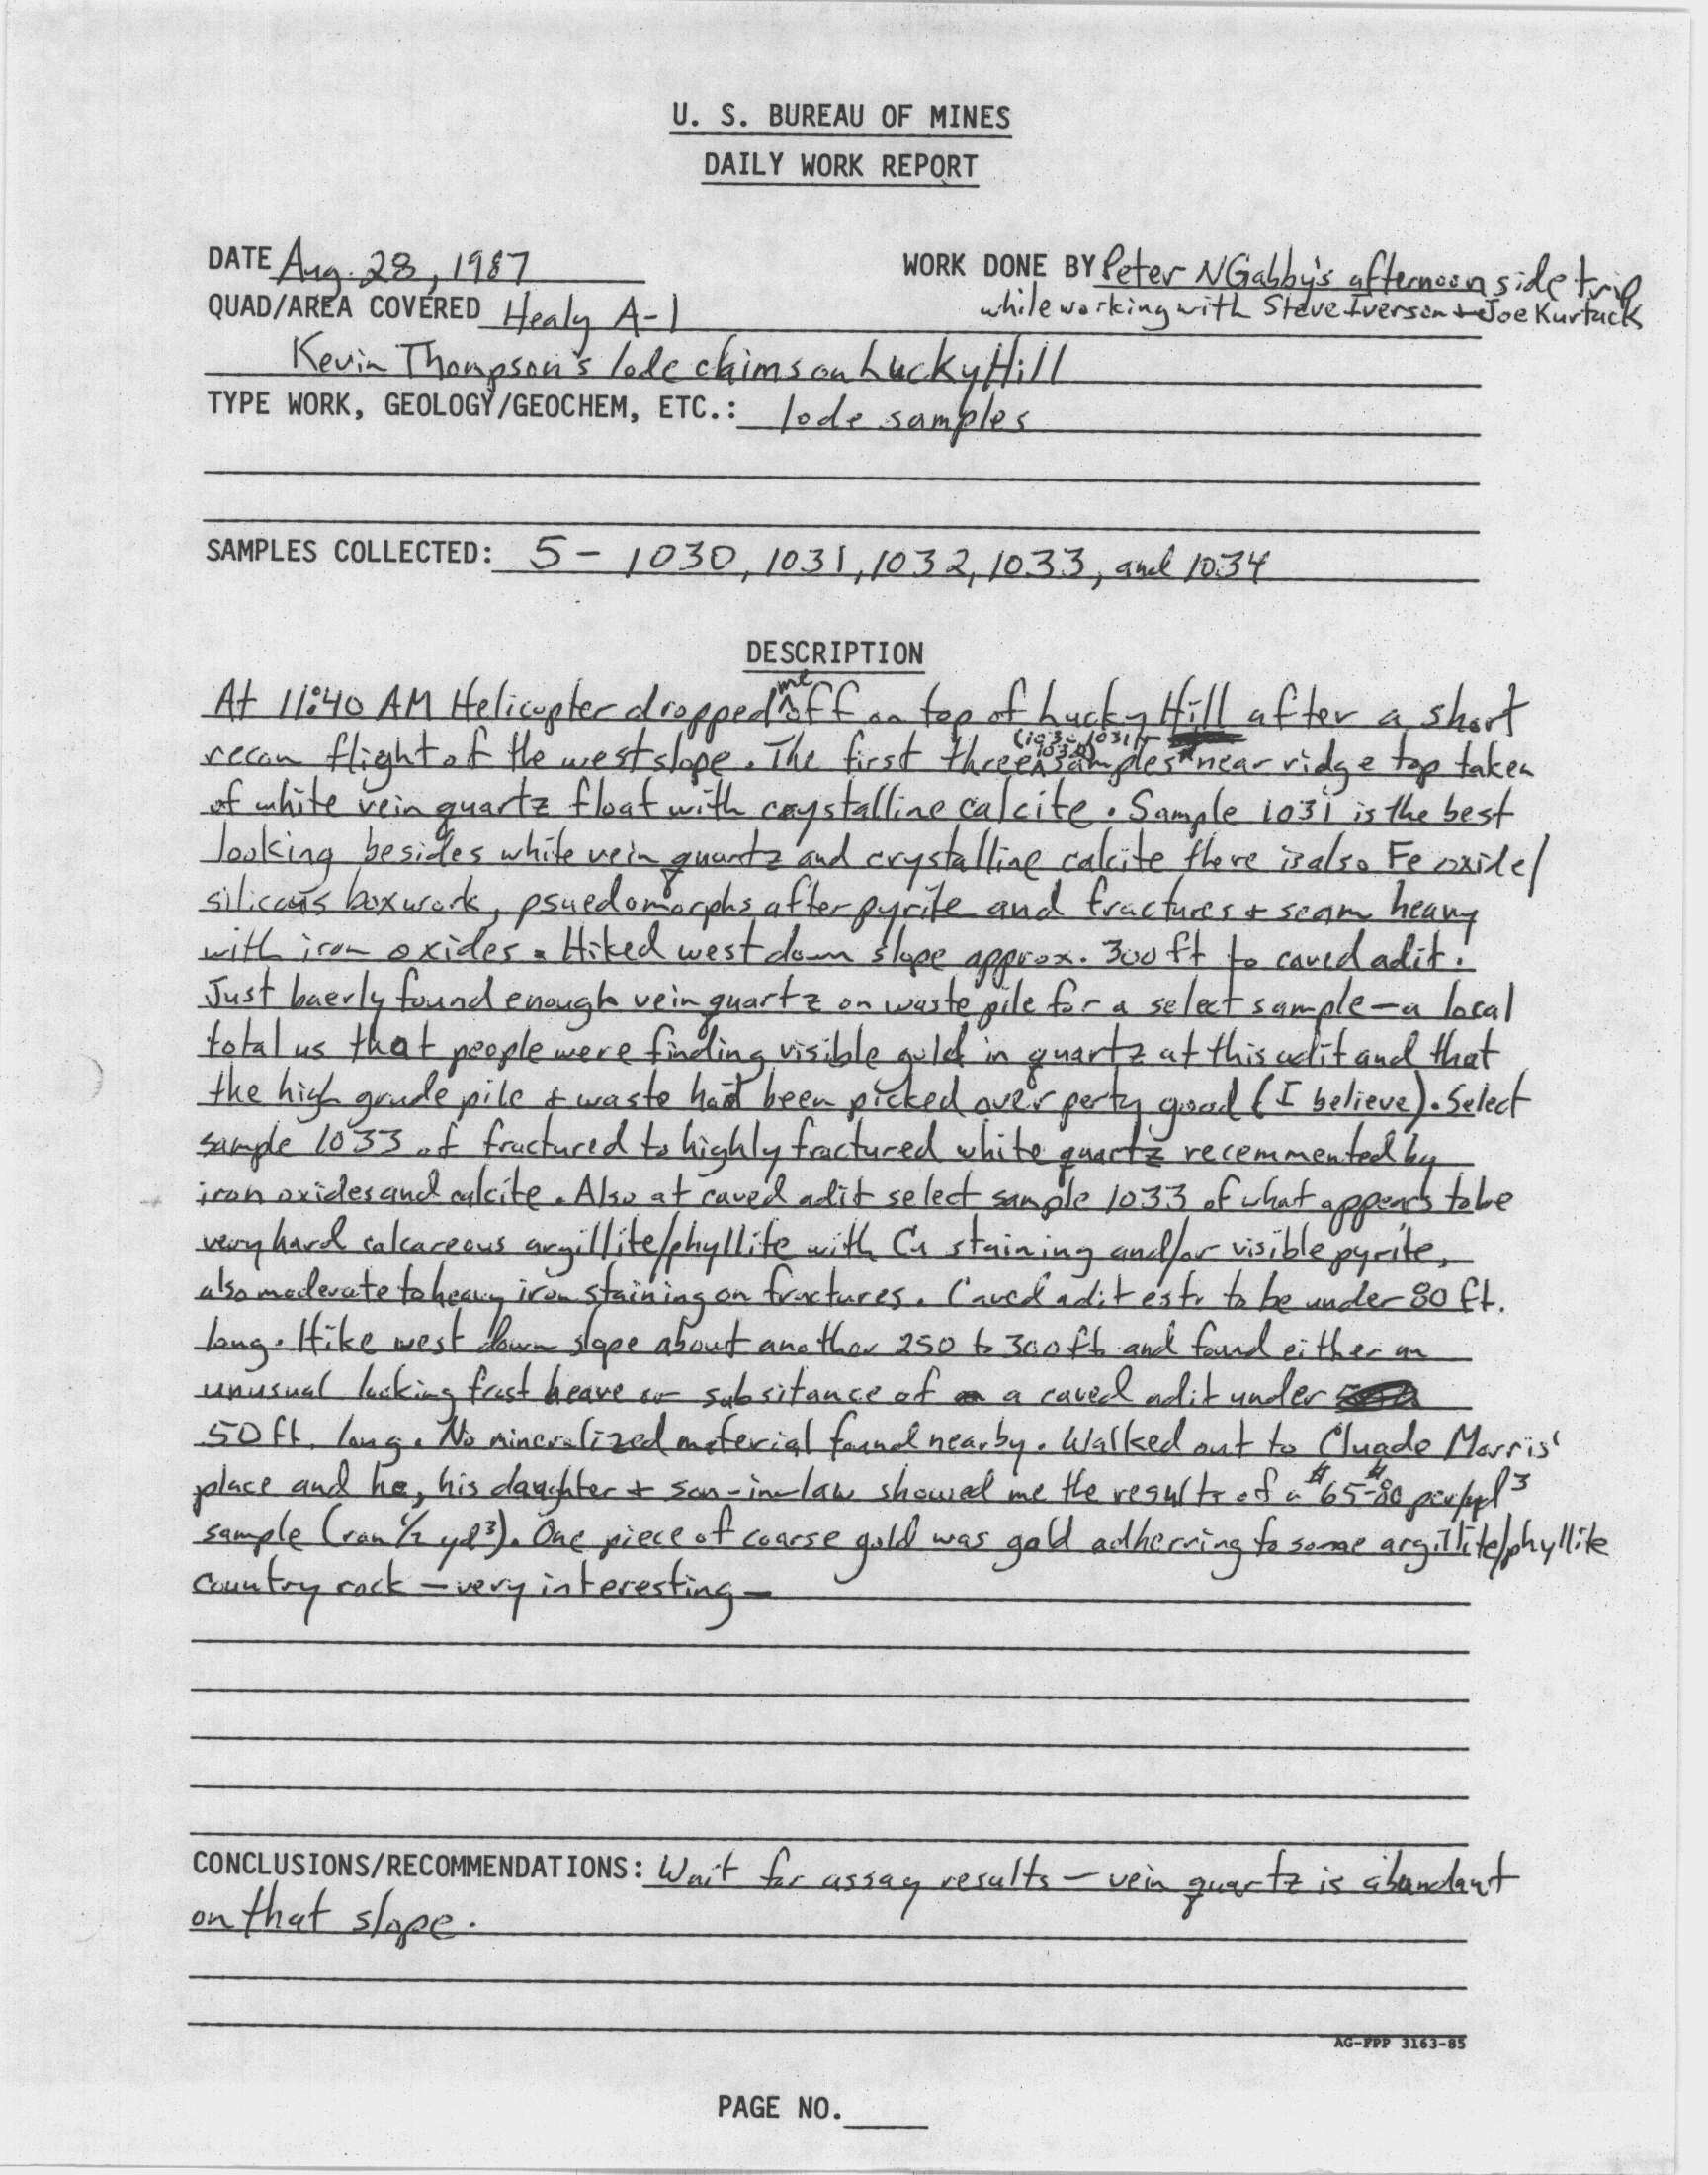 U. S. BUREAU OF MINES
DAILY WORK REPORT
DATE Aug. 28, 1987 WORK DONE BY Peter N Gabby's afternoon side trip
while working with Steve Iverson + Joe Kurtack
QUAD/AREA COVERED Healy A-1
Kevin Thompson's lode claims on Lucky Hill
TYPE WORK, GEOLOGY/GEOCHEM, ETC.: lode samples
SAMPLES COLLECTED: 5 - 1030, 1031, 1032, 1033, and 1034
DESCRIPTION
At 11:40 AM Helicopter dropped me off on top of Lucky Hill after a short
recon flight of the west slope. The first three (1030, 1031, 1032) samples near ridge top taken
of white vein quartz float with crystalline calcite. Sample 1031 is the best
looking besides white vein quartz and crystalline calcite there is also Fe oxide/
siliceous boxwork, psuedomorphs after pyrite and fractures + seam heavy
with iron oxides. Hiked west down slope approx. 300 ft to caved adit.
Just baerly found enough vein quartz on waste pile for a select sample - a local
total us that people were finding visible gold in quartz at this adit and that
the high grade pile + waste had been picked over perty good (I believe). Select
sample 1033 of fractured to highly fractured white quartz recemmented by
iron oxides and calcite. Also at caved adit select sample 1033 of what appears to be
very hard calcareous argillite/phyllite with Cu staining and/or visible pyrite,
also moderate to heavy iron staining on fractures. Caved adit est. to be under 80 ft.
long. Hike west down slope about another 250 to 300 ft and found either an
unusual looking frost heave or subsitance of a caved adit under
50 ft. long. No mineralized material found nearby. Walked out to Cluade Morris'
place and he, his daughter + son-in-law showed me the results of a $65-$80 per/yd³
sample (ran ½ yd³). One piece of coarse gold was gold adherring to some argillite/phyllite
country rock - very interesting -
CONCLUSIONS/RECOMMENDATIONS: Wait for assay results - vein quartz is abundant
on that slope.
AG-FPP 3163-85
PAGE NO.